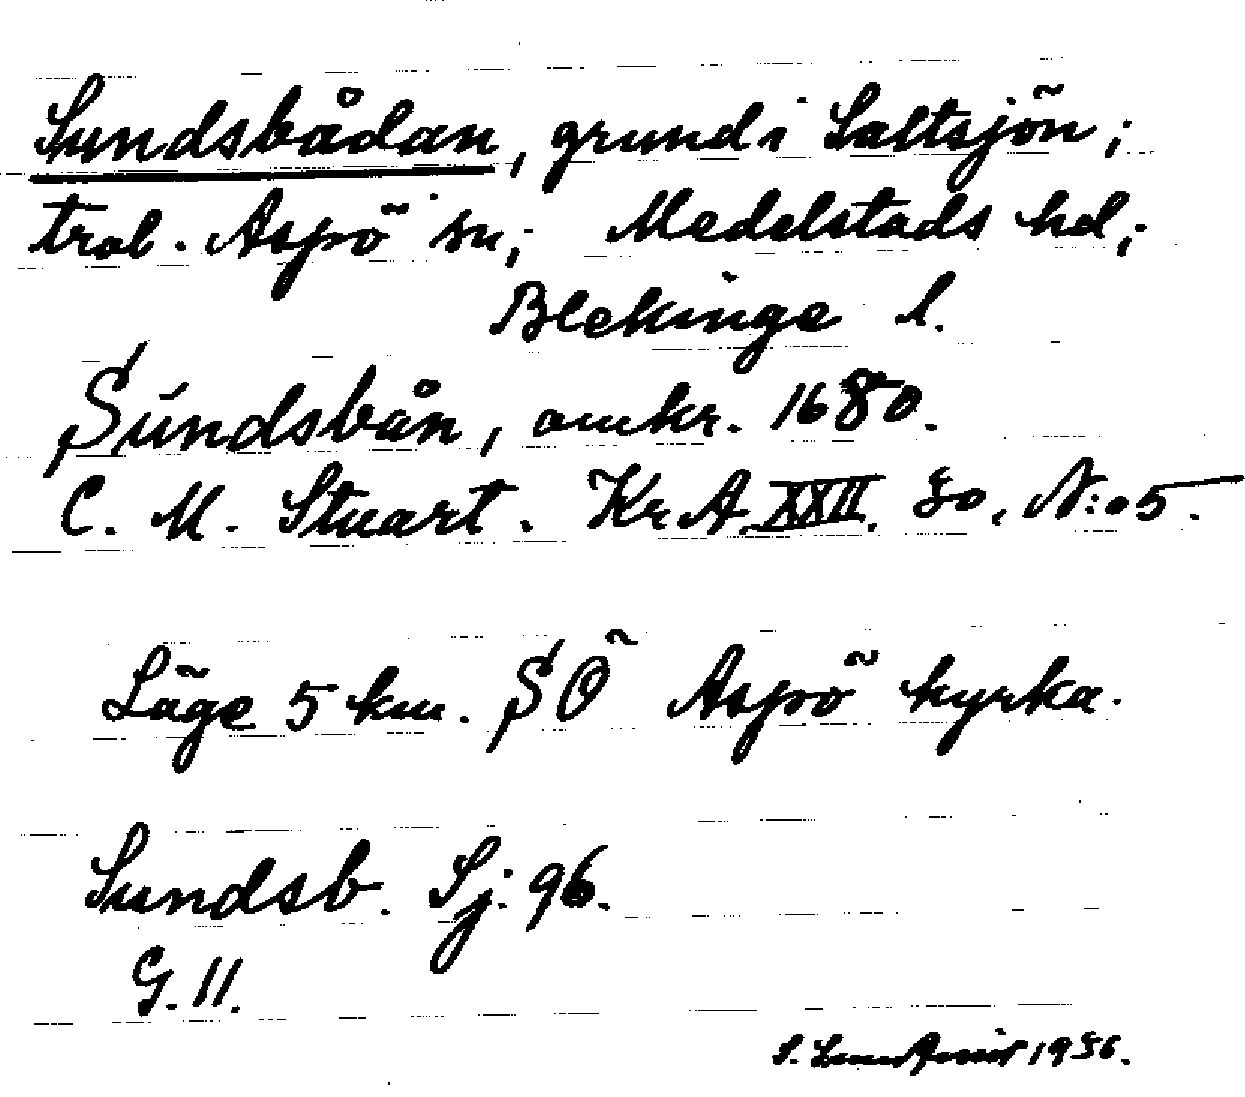 Sundsbådan, grund i Saltsjön;
trol. Aspö sn; Medelstads hd;
Blekinge l.
Sundsbån, omkr. 1680.
C. M. Stuart. Kr. A. XXII. 80. N:o 5.
Läge 5 km. SÖ Aspö kyrka.
Sundsb. Sj: 96.
G. 11.
S. 1956.